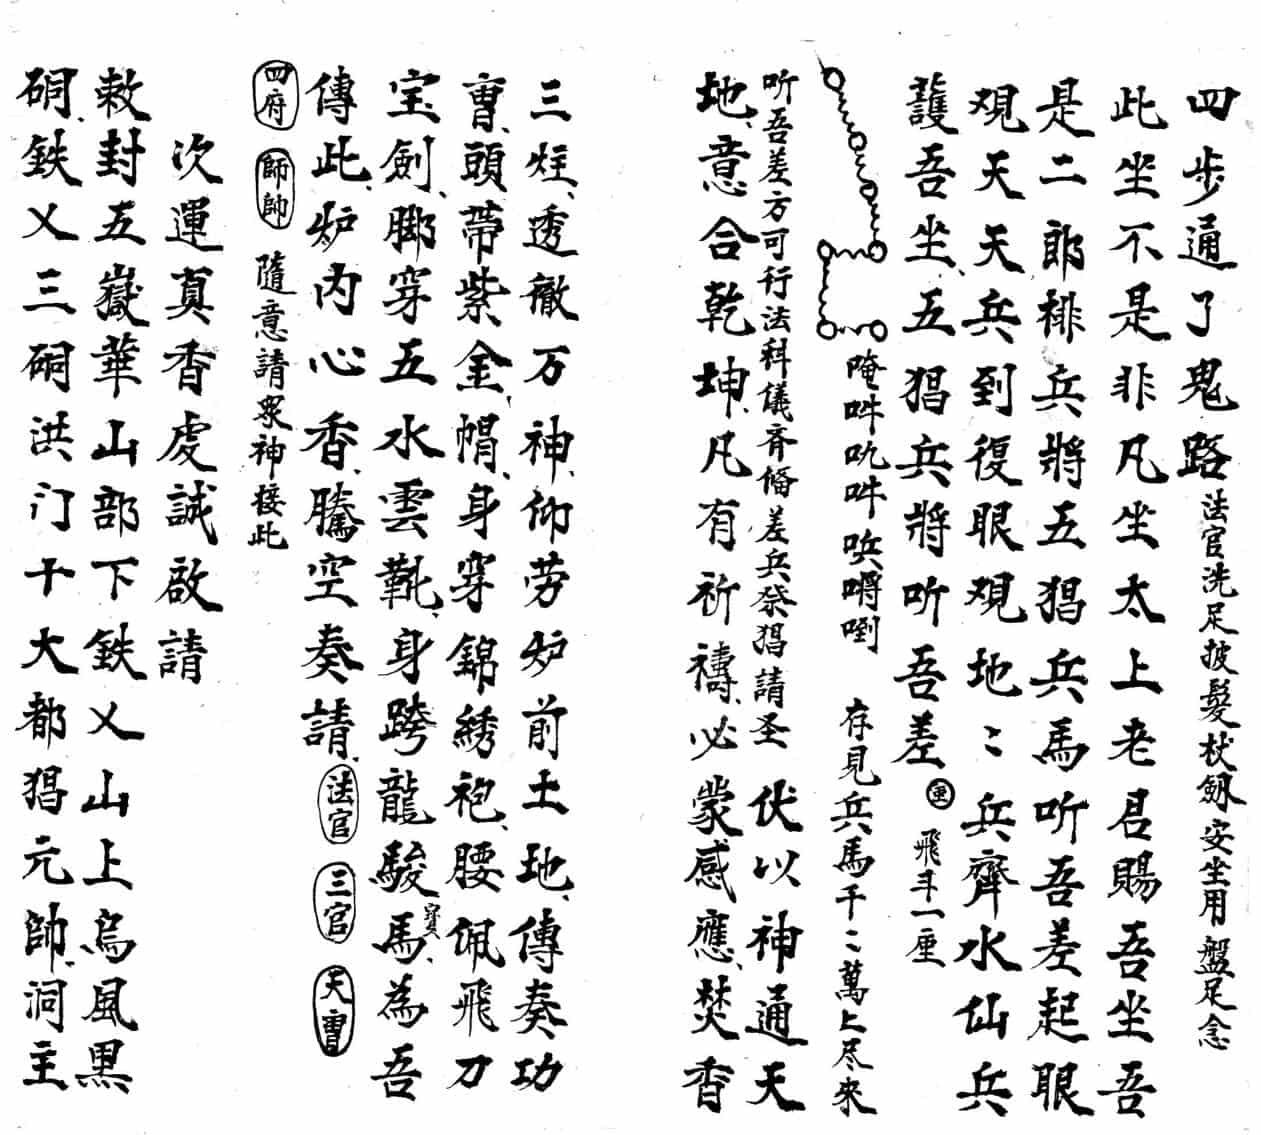 四步通了鬼路法官洗足披髮杖劔安坐用盤足念
此坐不是非凡坐太上老君賜吾坐吾
是二郎排兵將五猖兵馬听吾差起眼
观天天兵到復眼观地〻兵齊水仙兵
護吾坐五猖兵將听吾差 飛斗一座
唵吽吼吽 存見兵馬千〻萬〻尽來
听吾差方可行法科儀斉俻差兵祭猖請圣 伏以神通天
地意合乾坤凡有祈禱必蒙感應焚香
三炷透徹万神仰劳炉前土地傳奏功
曹頭带紫金帽身穿錦綉袍腰佩飛刀
宝劍脚穿五水雲靴身跨龍駿寳馬為吾
傳此炉内心香騰空奏請法官 三官 天曹
四府 師帥 隨意請眾神接此
次運真香虔誠啟請
敕封五嶽華山部下鉄乂山上烏風黒
硐鉄乂三硐洪门十大都猖元帥洞主